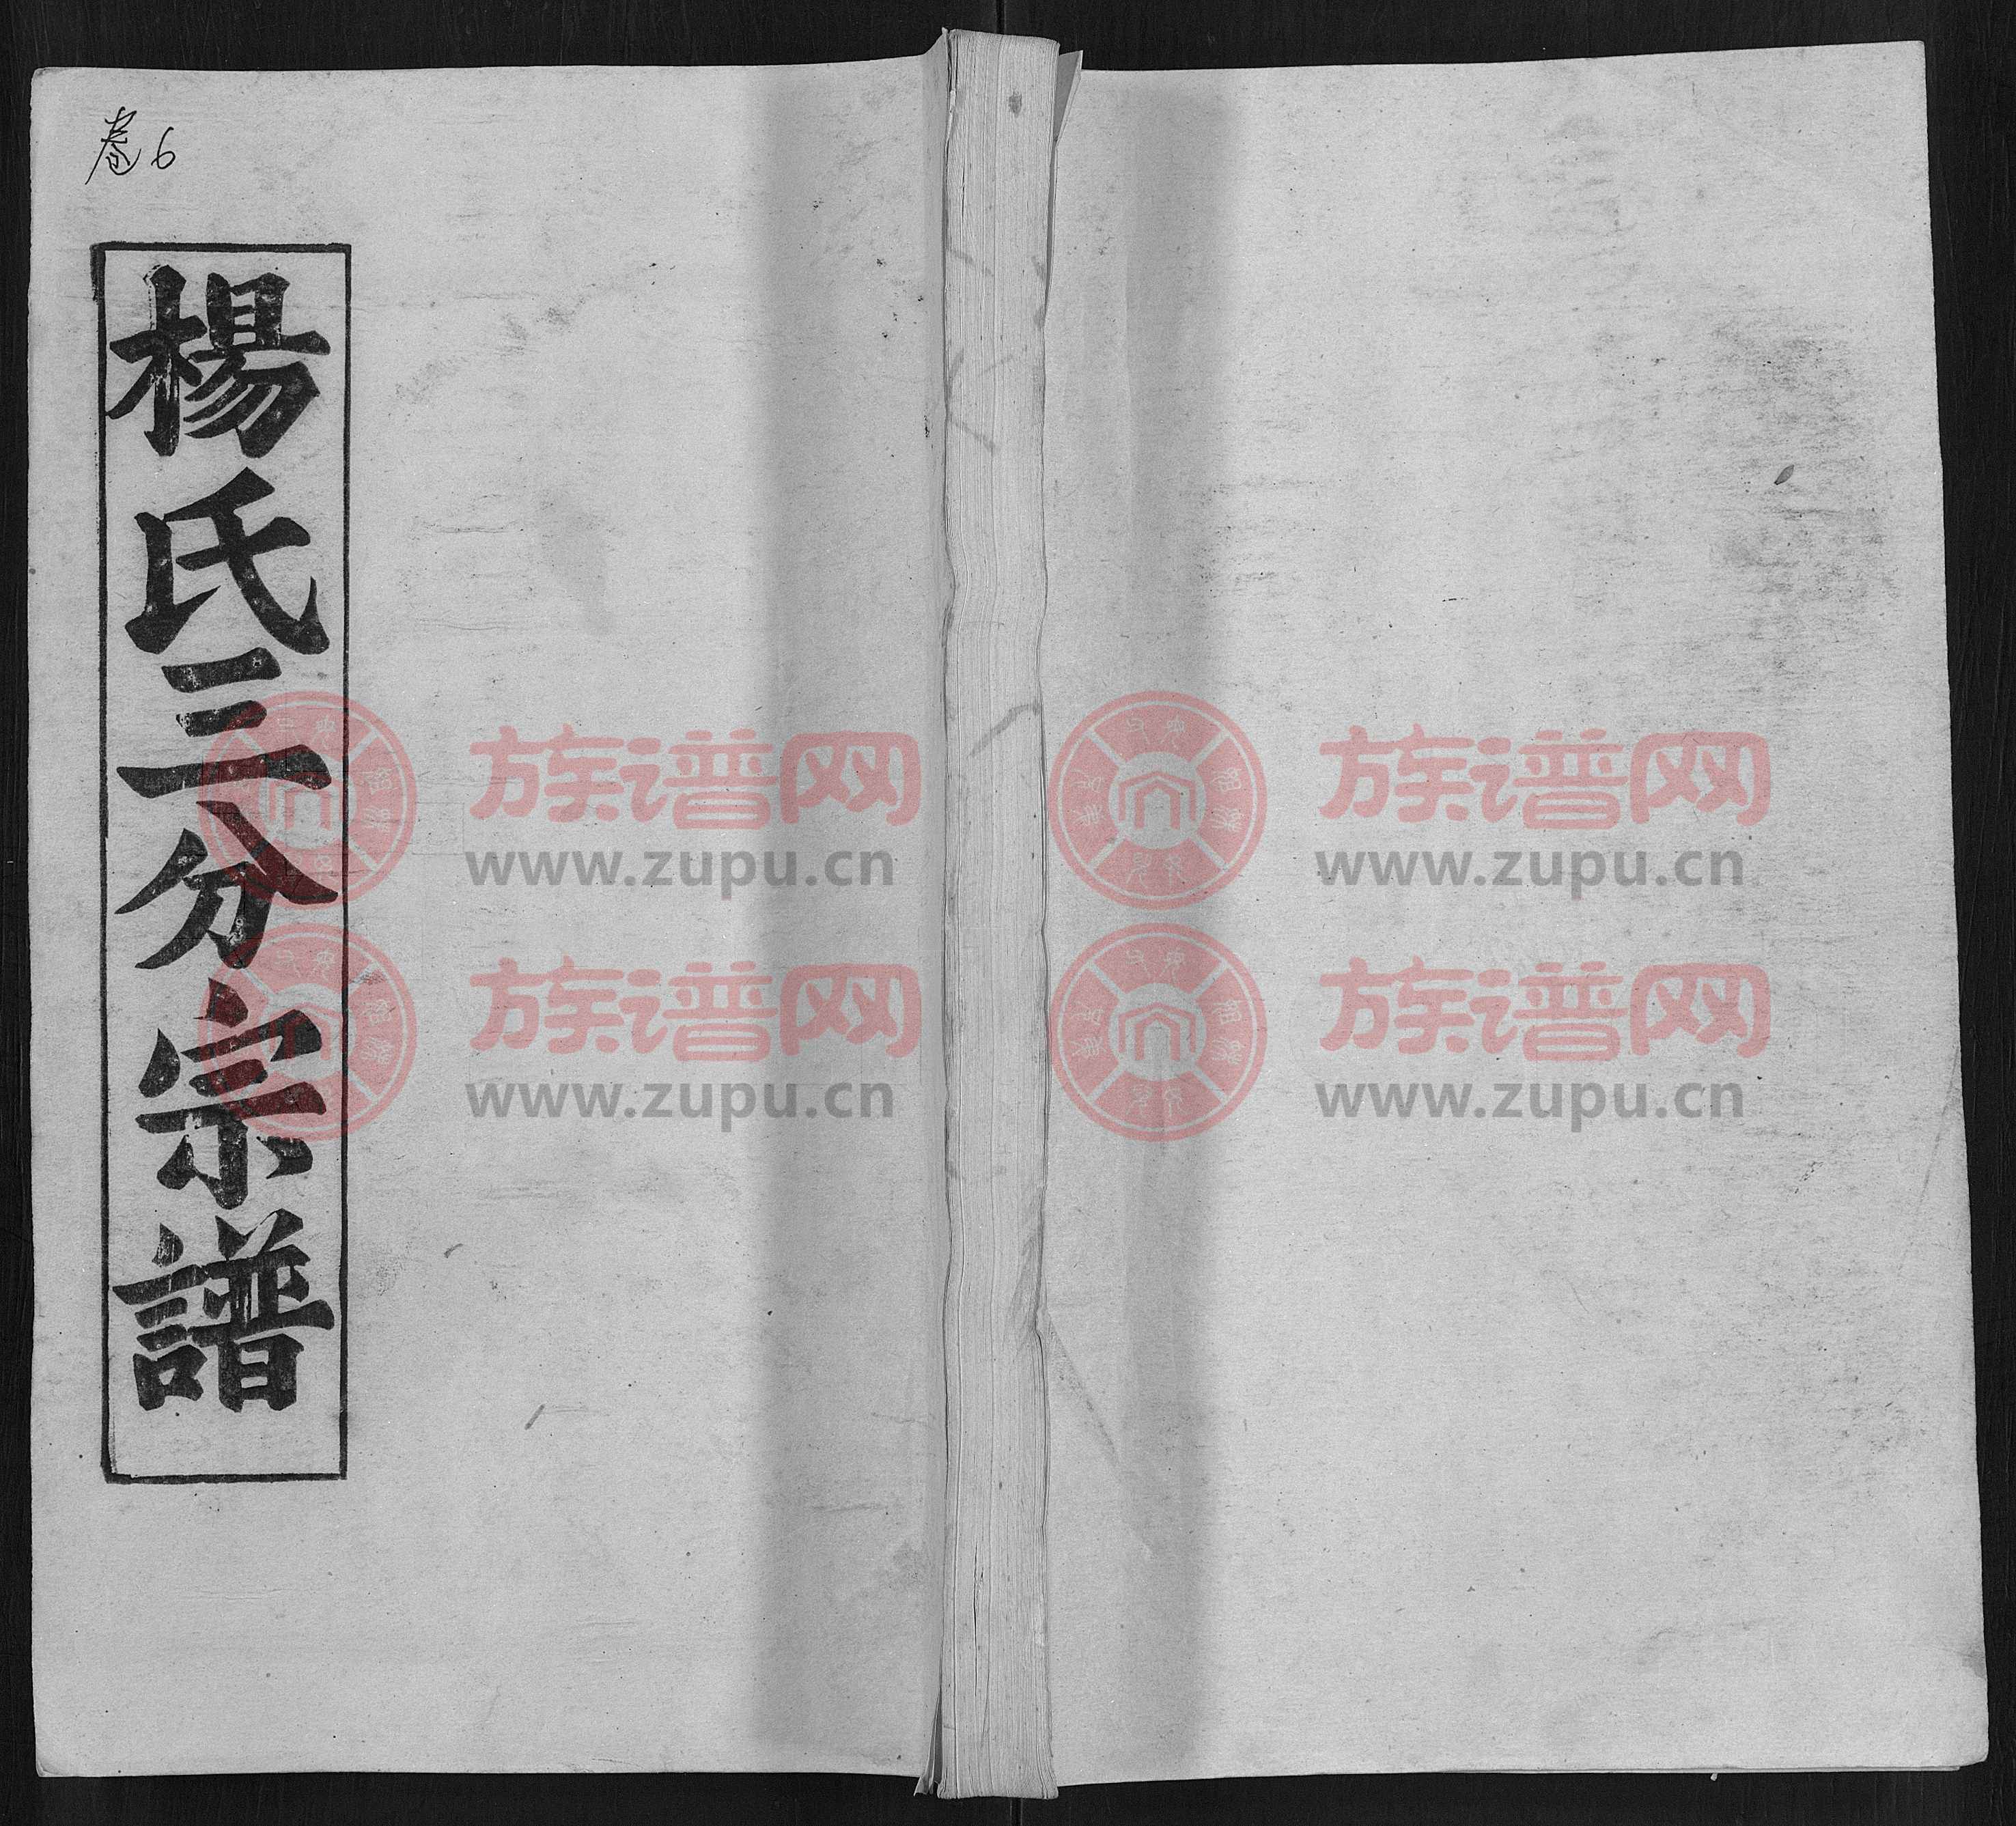 卷6
楊氏三分宗譜
族谱网
www.zupu.cn
族谱网
www.zupu.cn
族谱网
www.zupu.cn
族谱网
www.zupu.cn